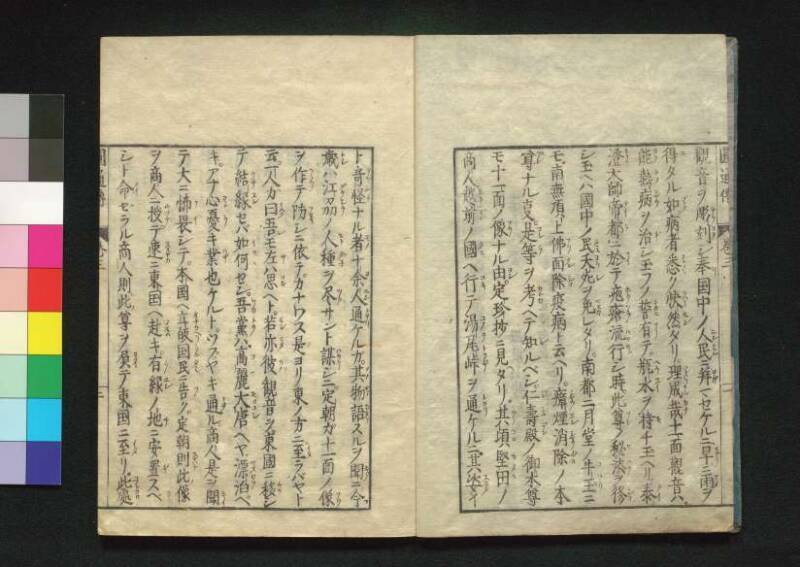 圓通傳 巻三
觀音ヲ彫刻シ奉国中ノ人民ニ拜マセケルニ早ニ雨ヲ
得タル如病者悉ク快然タリ理成哉十一面觀音ハ
能熱病ヲ治シ玉フノ誓有テ瓶水ヲ持チ玉ヘリ泰
澄大師帝都ニ於テ疱瘡流行シ時此尊ノ秘法ヲ修
シ玉ヘハ國中ノ民夭死ヲ免レタリ南都二月堂ノ牛玉ニ
モ南無頂上佛面除疫病ト云ヘリ瘴煙消除ノ本
尊ナル叓是等ヲ考ヘテ知ルベシ仁壽殿ノ御本尊
モ十一面ノ像ナル由定珍抄ニ見タリ其頃堅田ノ
商人越前ノ國ヘ行テ湯尾峠ヲ通ケルニ其姿イ
ト竒怪ナル者十余人通ケルカ其物語スルヲ聞ニ今
歳ハ江州ノ人種ヲ尽サント謀シニ定朝カ十一面ノ像
ヲ作テ防シニ依テカナワス是ヨリ東ノ方ニ至ラバヤト
云一人カ曰吾モ左ハ思ヘト若亦彼觀音ヲ東國ニ移シ
テ結縁セハ如何セン吾黨ハ高麗大唐ヘヤ漂泊ヘ
キアナ心憂キ業也ケルトツブヤキ通ル商人是ヲ聞
テ大ニ怖畏シテ本国ヘ立皈国民ニ告ク定朝則此像
ヲ商人ニ授テ速ニ東国ヘ赴キ有縁ノ地ニ安置スヘ
シト命セラル商人則此尊ヲ負テ東国ニ至リ此処
圓通傳 巻三 二